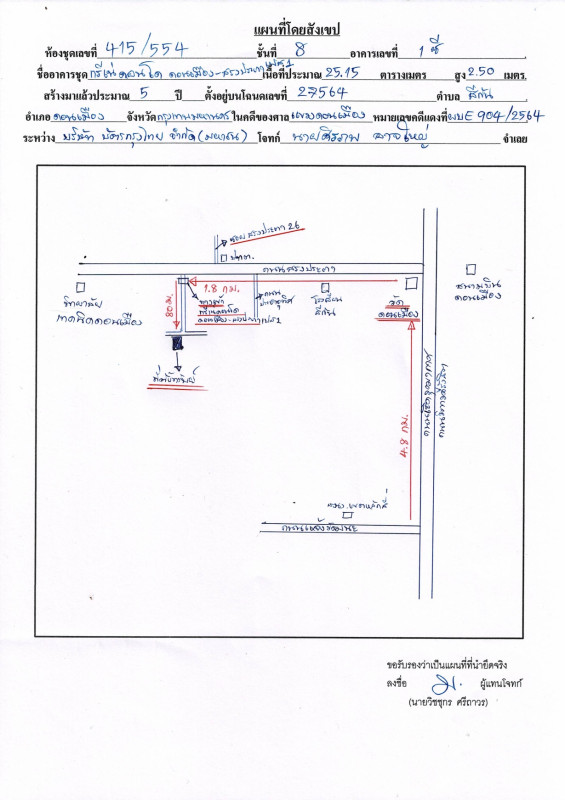 แผนที่โดยสังเขป
ห้องชุดเลขที่ 415/554 ชั้นที่ 8 อาคารเลขที่ 1 ซี
ชื่ออาคารชุด กรีเน่คอนโด ดอนเมือง-สรงประภา เฟส1 เนื้อที่ประมาณ 25.15 ตารางเมตร สูง 2.50 เมตร.
สร้างมาแล้วประมาณ 5 ปี ตั้งอยู่บนโฉนดเลขที่ 27564 ตำบล สีกัน
อำเภอ ดอนเมือง จังหวัด กรุงเทพมหานคร ในคดีของศาล แขวงดอนเมือง หมายเลขคดีแดงที่ ผบE 904/2564
ระหว่าง บริษัท บัตรกรุงไทย จำกัด (มหาชน) โจทก์ นาย จำเลย
ซอยสรงประภา 26
ถนนสรงประภา
1.8 กม.
80 ม.
วิทยาลัย
เทคนิคดอนเมือง
ทางเข้า
กรีเน่คอนโด
ดอนเมือง-สรงประภาเฟส1
ถนน
โรงเรียน
สีกัน
วัด
ดอนเมือง
สนามบิน
ดอนเมือง
ที่ตั้งทรัพย์
4.8 กม.
ถนนวิภาวดีรังสิต
ถนนแจ้งวัฒนะ
ขอรับรองว่าเป็นแผนที่ที่นำยึดจริง
ลงชื่อ ผู้แทนโจทก์
(นายวิชชุกร ศรีถาวร)